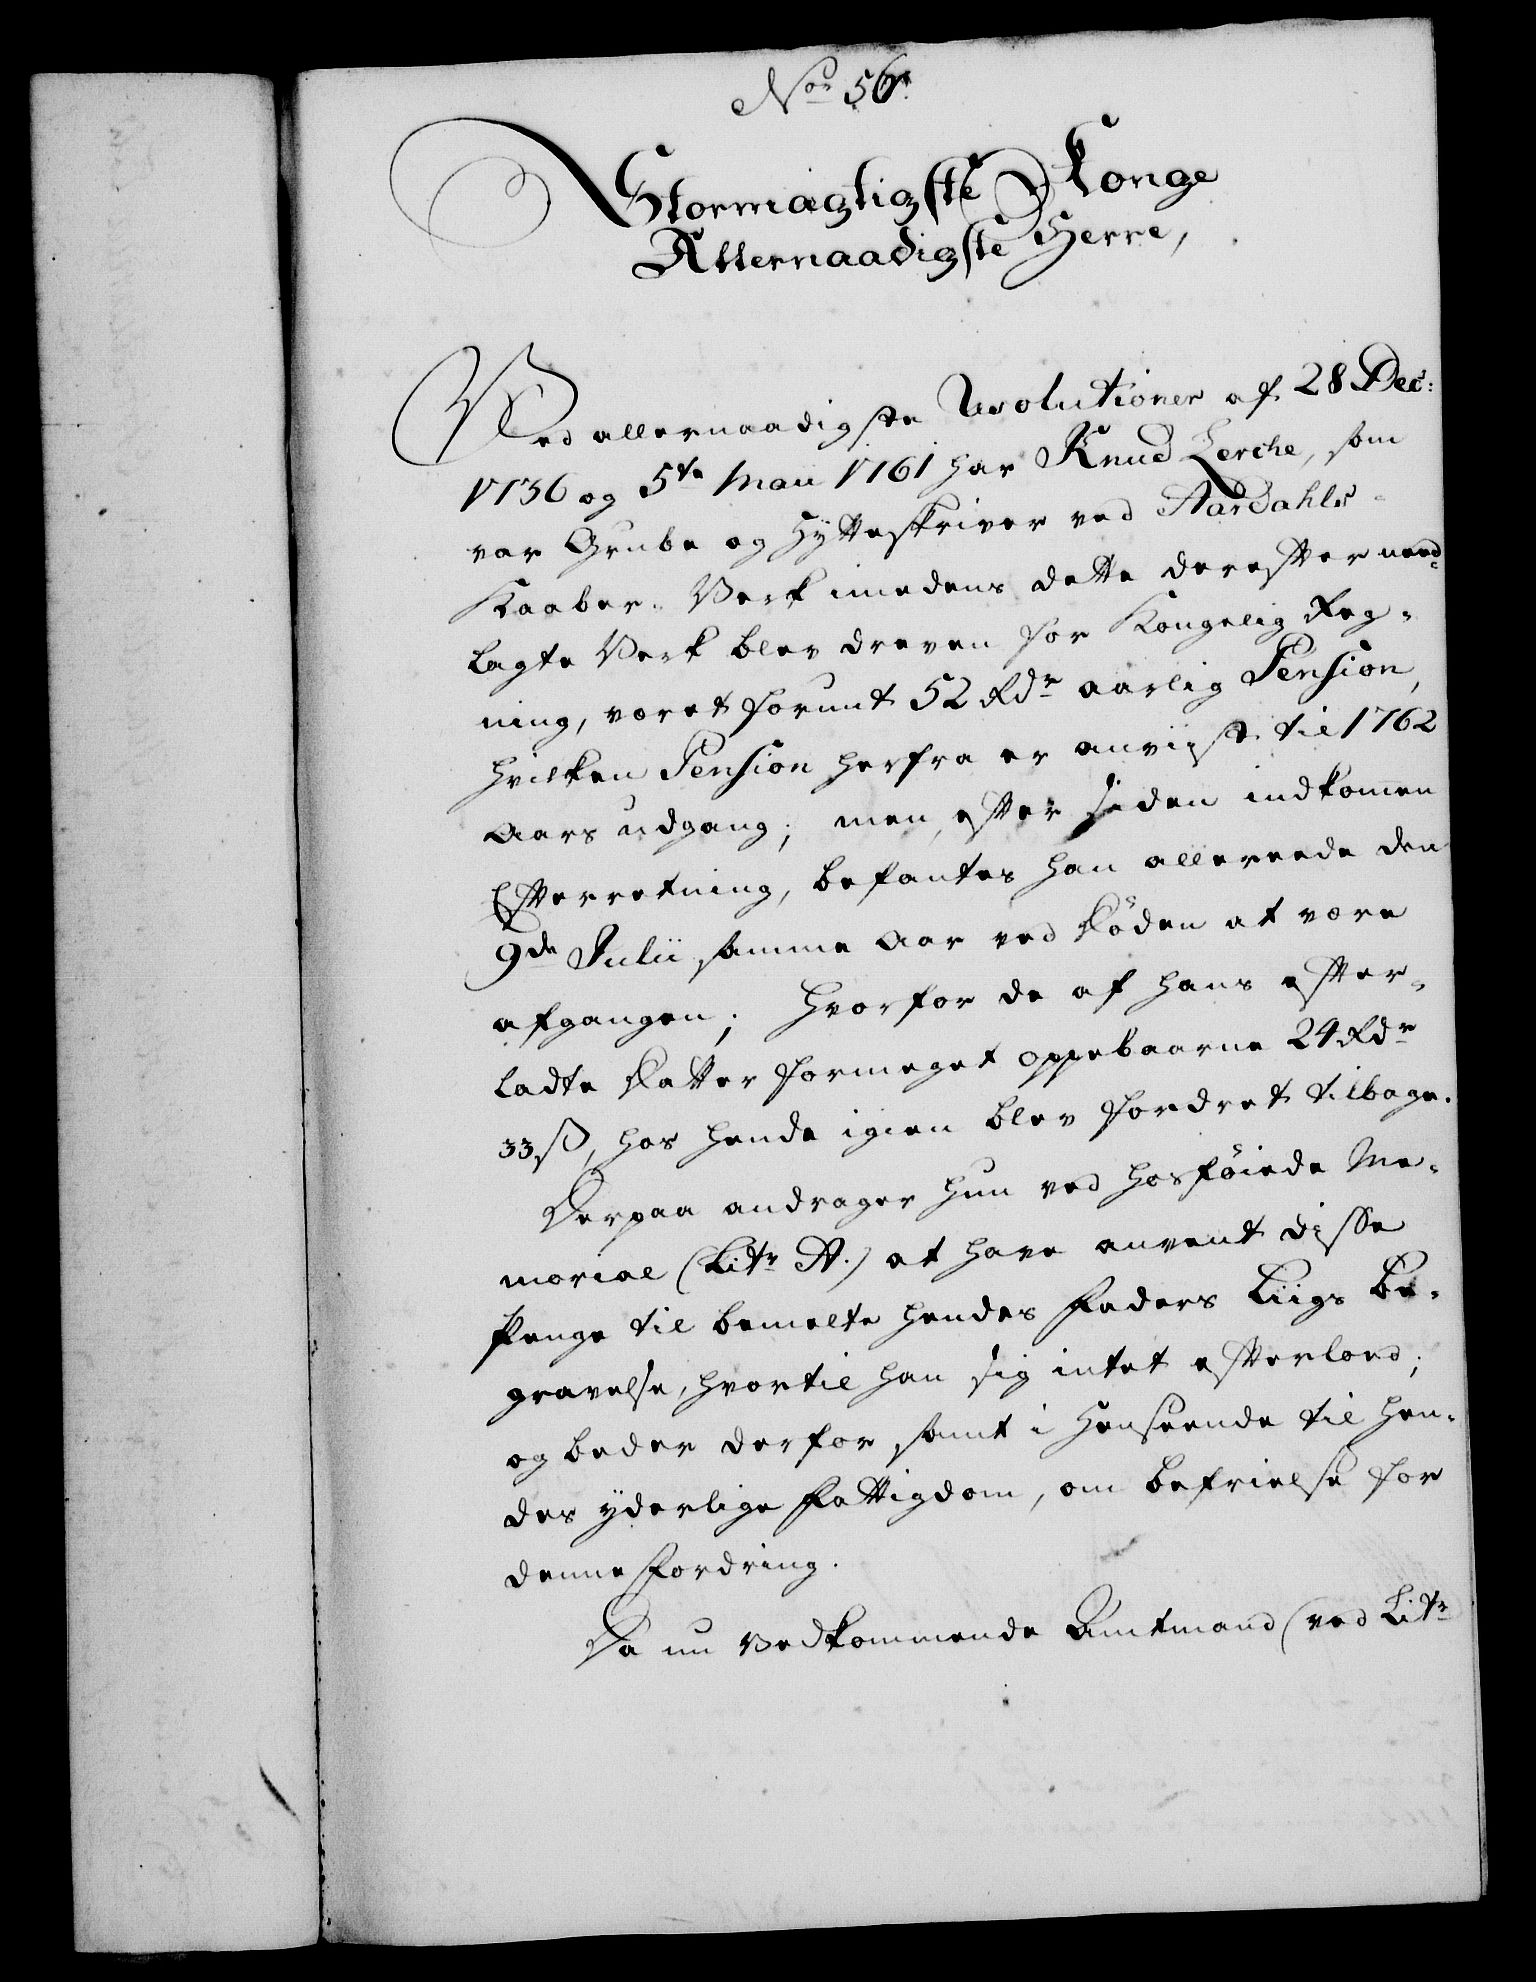 Nor 56.
Stormægtigste Konge
Allernaadigste Herre,
Ved allernaadigste Resolutioner af 28 Dec:
1756 og 5te Maii 1761 har Knud Lerche, som
var Grube og Hÿtteskriver ved Aardahls-
Kaaber-Verk imedens dette derefter need-
lagte Verk blev dreven for Kongelig Reg-
ning, været forunt 52 Rdr aarlig Pension,
hvilken Pension herfra er anviist til 1762
Aars udgang; men, efter siden indkommen
Efterretning, befantes han allereede den
9de Julii samme Aar ved Døden at være
afgangen; hvorfor de af hans efter-
ladte Datter formeget oppebaarne 24 Rdr
33 ß, hos hende igien blev fordret tilbage.
Derpaa andrager hun ved hosføiede Me-
morial (Litr A.) at have anvent disse
Penge til bemelte hendes Faders Liigs Be-
gravelse, hvortil han sig intet efterlod;
og beder derfor samt i Henseende til hen-
des ÿderlige Fattigdom, om befrielse for
denne Fordring.
Da nu vedkommende Amtmand (ved Litr